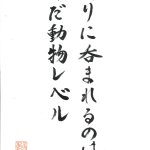 りに呑まれるのは
だ動物レベル